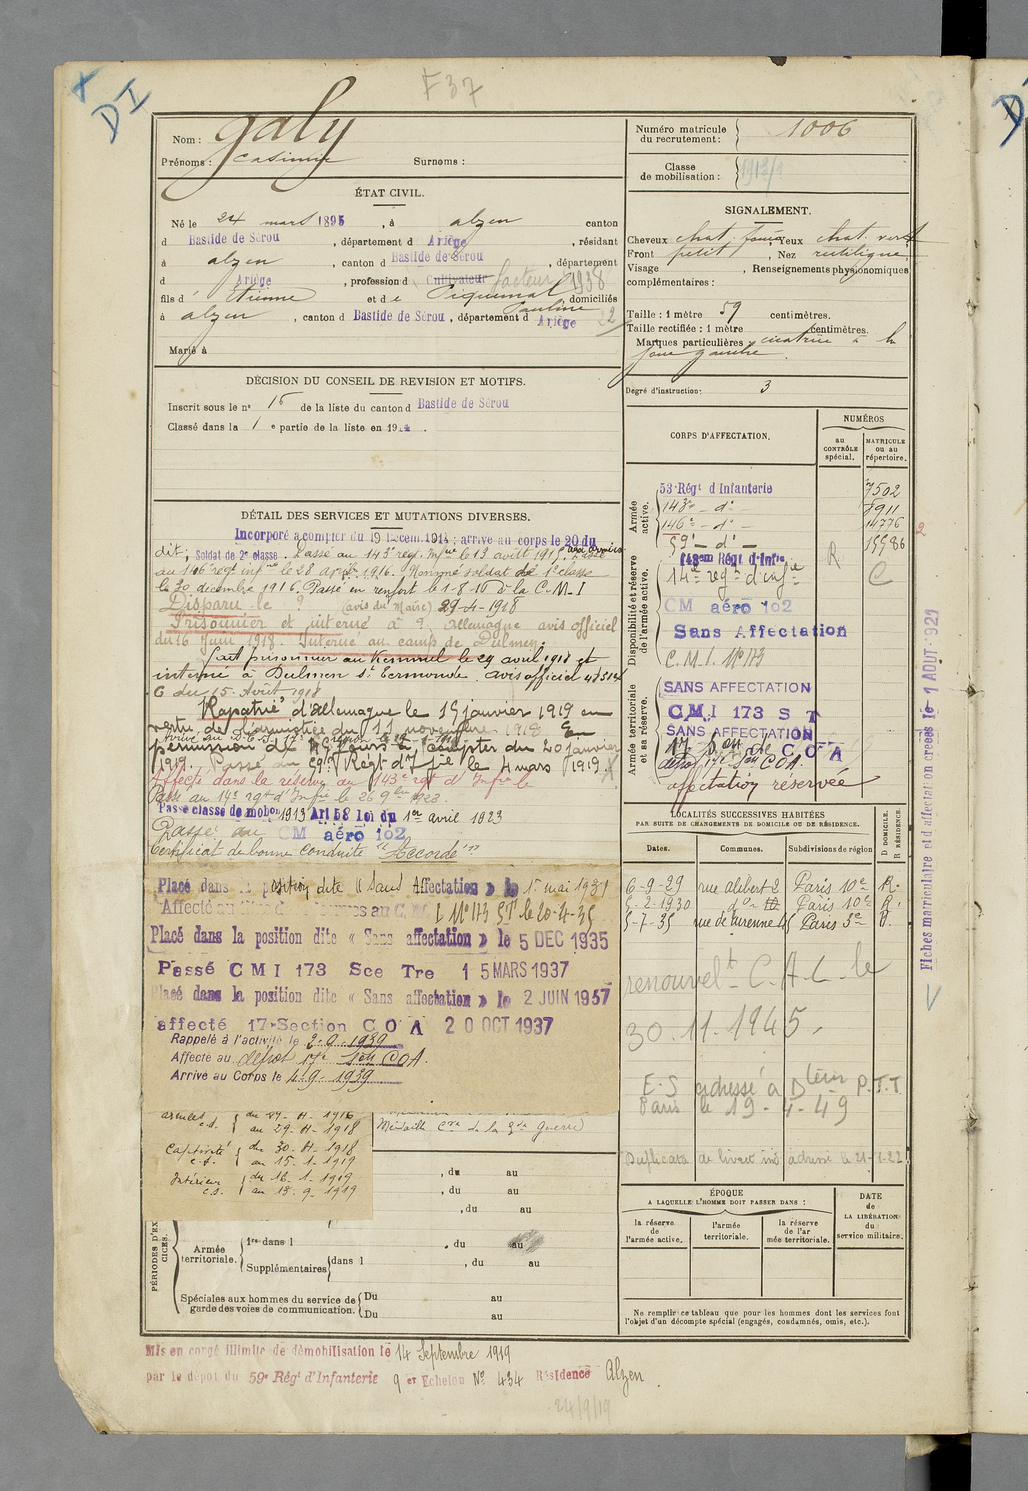 F 37
DI
Nom : Galy
Prénoms : Casimir Surnoms :
Numéro matricule du recrutement : 1006
Classe de mobilisation :
ÉTAT CIVIL.
Né le 24 mars 1895, à Alzen canton
d Bastide de Sérou, département d Ariège, résidant
à Alzen, canton d Bastide de Sérou, département
d Ariège, profession d Cultivateur facteur 1938
fils d' Étienne et de Piquemal Pauline, domiciliés
à Alzen, canton d Bastide de Sérou, département d Ariège 22
Marié à
SIGNALEMENT.
Cheveux chat. foncé, Yeux chat. vert
Front petit, Nez rectiligne
Visage , Renseignements physionomiques
complémentaires :
Taille : 1 mètre 59 centimètres.
Taille rectifiée : 1 mètre centimètres.
Marques particulières : cicatrice à la
joue gauche.
Degré d'instruction : 3
DÉCISION DU CONSEIL DE REVISION ET MOTIFS.
Inscrit sous le n° 15 de la liste du canton d Bastide de Sérou
Classé dans la 1 e partie de la liste en 1914.
DÉTAIL DES SERVICES ET MUTATIONS DIVERSES.
Incorporé à compter du 19 Décem. 1914 ; arrivé au corps le 20 du
dit ; Soldat de 2e classe. Passé au 143e rég. Infrie le 13 août 1915. Passé aux armées
au 146e régt infrie le 28 Avril 1916. Nommé soldat de 1e classe
le 30 décembre 1916. Passé en renfort le 1-8-10 à la C.M.I
Disparu le ? (avis du Maire) 29-4-1918
Prisonnier et interné à ? Allemagne avis officiel
du 16 Juin 1918. Interné au camp de Dulmen.
fait prisonnier au Kemmel le 29 avril 1918 et
interné à Dulmen St Termonde. Avis officiel
G du 15 Août 1918
Rapatrié d'Allemagne le 15 janvier 1919 en
vertu de l'armistice du 11 novembre 1918 En
permission de 45 Jours à compter du 20 janvier
1919. Passé du 59e Régt d'Ifie le 4 mars 1919
Affecté dans la réserve au 143e rgt d'Infie le
Passé au 14e rgt d'Infie le 26 9bre 1923.
Passé classe de mobon 1913 Art 58 loi du 1er avril 1923
Passé au CM aéro 102
Certificat de bonne conduite "Accordé"
Placé dans la position dite « Sans Affectation » le 1er mai 1931
I N° 173 ST le 20-4-35
Placé dans la position dite « Sans affectation » le 5 DEC 1935
Passé CMI 173 Sce Tre 15 MARS 1937
Placé dans la position dite « Sans affectation » le 2 JUIN 1937
affecté 17e Section C O A 20 OCT 1937
Rappelé à l'activité le 2-9-1939
Affecté au dépôt 17e Son COA.
Arrivé au Corps le 4-9-1939
armées du 29-4-1916
c.s. au 29-4-1918
Captivité du 30-4-1918
c.s. au 15-1-1919
Intérieur du 16-1-1919
c.s. au 13-9-1919
Médaille Cve de la gde Guerre
CORPS D'AFFECTATION.
NUMÉROS
au CONTRÔLE spécial.
MATRICULE ou au répertoire.
Armée active.
53e Régt d'Infanterie 7502
143e - do - 8911
146e - do - 14776
59e - do - 15586
Disponibilité et réserve de l'armée active.
143em Régt d'Infie R
14e régt d'infie C
CM aéro 102
Sans Affectation
C.M.I. N° 173
Armée territoriale et sa réserve.
SANS AFFECTATION
C.M.I 173 S T
SANS AFFECTATION
17 Son de C O A
dépôt 17e Son COA.
affectation réservée
LOCALITÉS SUCCESSIVES HABITÉES
PAR SUITE DE CHANGEMENTS DE DOMICILE OU DE RÉSIDENCE.
Dates. Communes. Subdivisions de région
D DOMICILE. R RÉSIDENCE.
6-9-29 rue Alibert 2 Paris 10e R.
5-2-1930 do 10 Paris 10e R.
5-7-35 rue de Turenne 45 Paris 3e D.
renouvelt C.A.C. le
30.11.1945.
E.S adressé à Dteur P.T.T
Paris le 19-4-49
Duplicata de livret ind adressé le 21-1-22
ÉPOQUE
A LAQUELLE L'HOMME DOIT PASSER DANS :
la réserve de l'armée active.
l'armée territoriale.
la réserve de l'armée territoriale.
DATE de LA LIBÉRATION du service militaire.
Ne remplir ce tableau que pour les hommes dont les services font
l'objet d'un décompte spécial (engagés, condamnés, omis, etc.).
, du au
, du au
, du au
PÉRIODES D'EXERCICES.
Armée territoriale.
1re dans l , du au
Supplémentaires dans l , du au
Spéciales aux hommes du service de garde des voies de communication.
Du au
Du au
Mis en congé illimité de démobilisation le 14 Septembre 1919
par le dépôt du 59e Régt d'Infanterie 9 e Echelon N° 434 Résidence Alzen.
24/9/19
Fiches matriculaire et d'affectation créées le 1 AOUT 1921